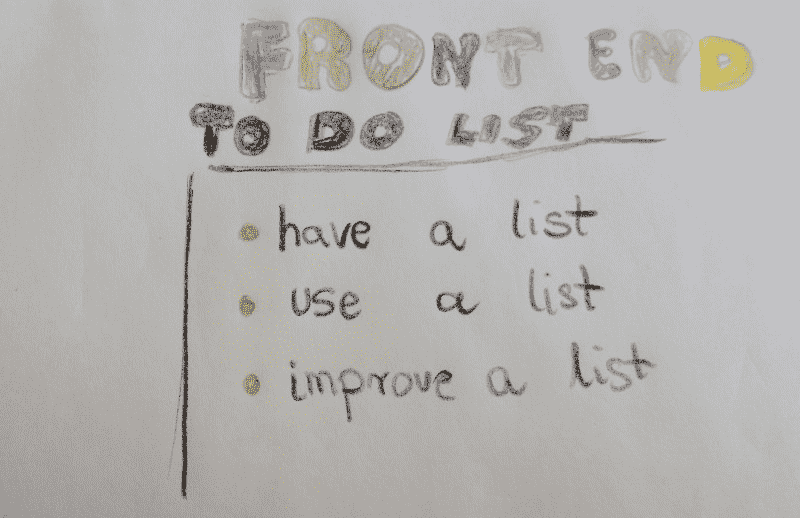 FRONT END
TO DO LIST
• have a list
• use a list
• improve a list